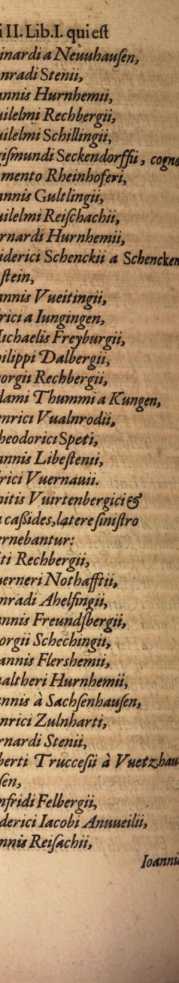 i II. Lib. I. qui eſt
inardi a Neuuhauſen,
nradi Stenii,
annis Hurnhemii,
uilelmi Rechbergii,
uilelmi Schillingii,
giſmundi Seckendorffii, cogno
mento Rheinhoferi,
annis Gultlingii,
uilelmi Reiſchachii,
rnardi Hurnhemii,
iderici Schenckii a Schencken
ſtein,
annis Vueitingii,
rici a Iungingen,
lichaelis Freyburgii,
ilippi Dalbergii,
orgii Rechbergii,
dami Thummi a Kungen,
enrici Vualnrodii,
heodorici Speti,
annis Libeſtenii,
rici Vuernauii.
nitis Vuirtenbergici &
caßides, latere ſiniſtro
ernebantur:
iti Rechbergii,
erneri Nothafftii,
nradi Ahelfingii,
annis Freundſbergii,
orgii Schechingii,
annis Flershemii,
altheri Hurnhemii,
annis à Sachſenhauſen,
nrici Zulnharti,
rnardi Stenii,
berti Truccefii à Vuetzhau
ſen,
nfridi Felbergii,
derici Iacobi Anuueilii,
annis Reiſachii,
Ioannis